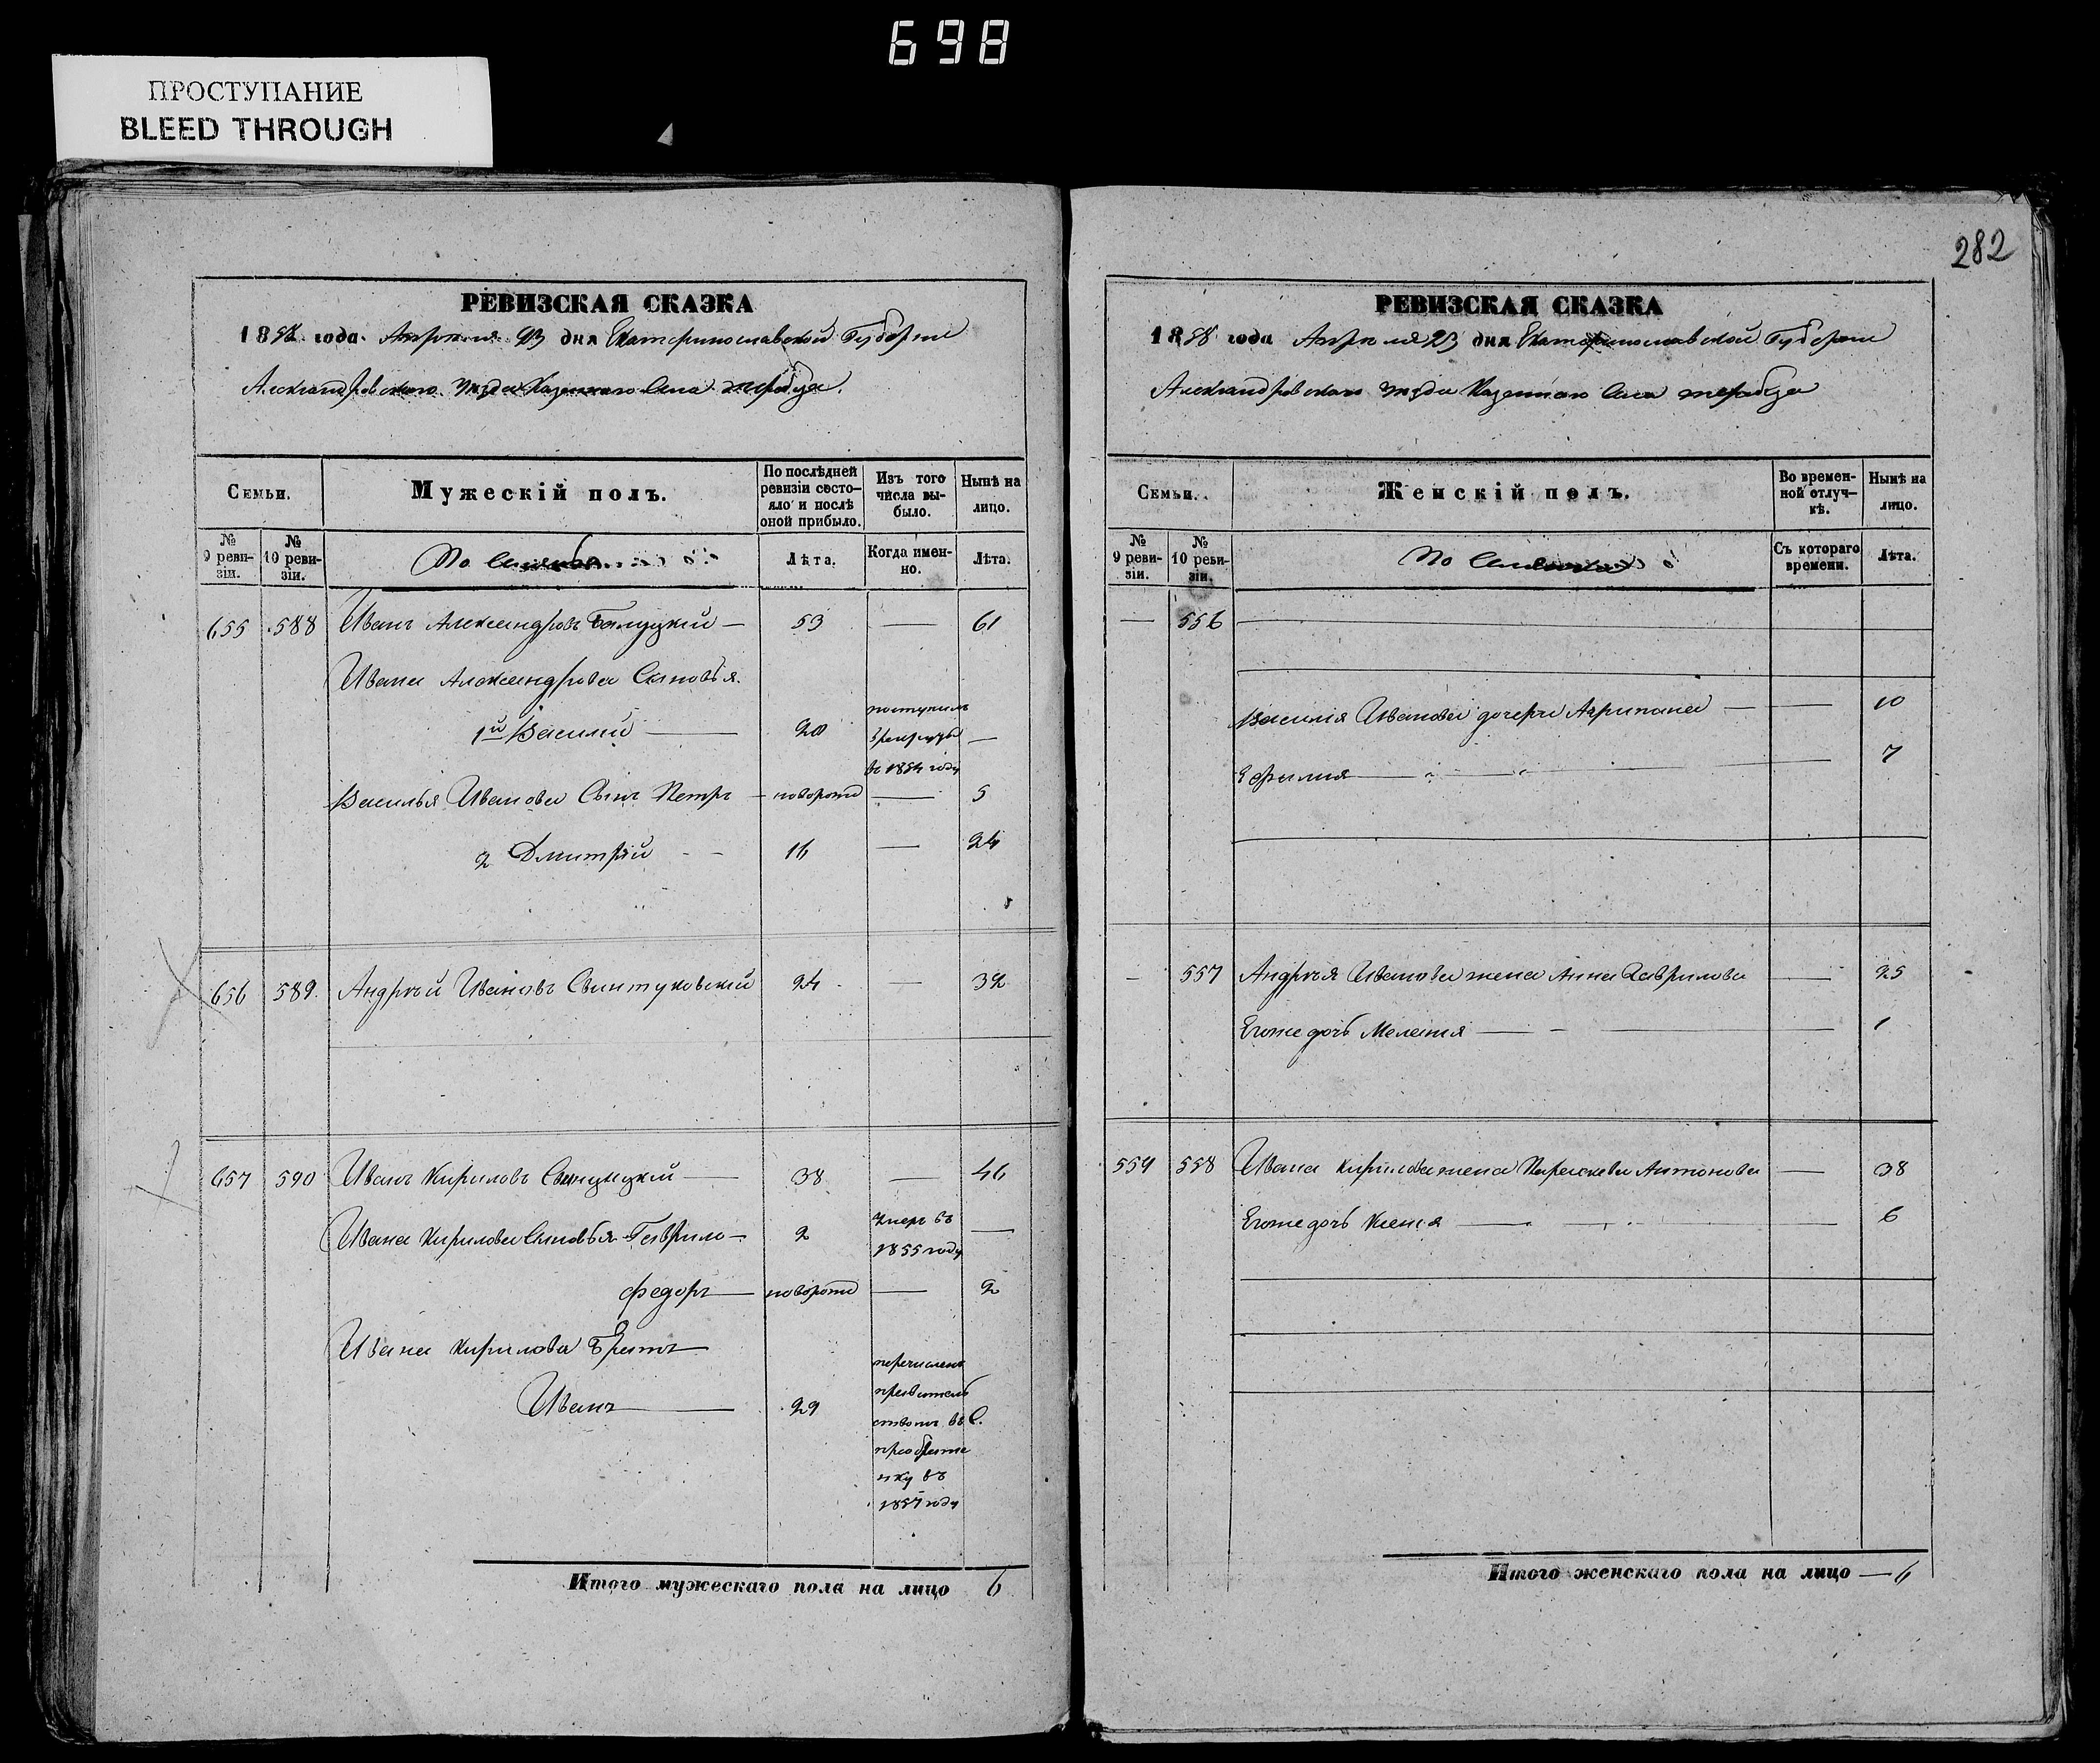 698
ПРОСТУПАНИЕ
BLEED THROUGH
РЕВИЗСКАЯ СКАЗКА
1858 года. Апреля 23 дня Екатеринославской Губерніи
Александровскаго уезда Казеннаго Села
Семьи.
Мужескій полъ.
По послѣдней ревизіи состояло и послѣ оной прибыло.
Изъ того числа выбыло.
Нынѣ на лицо.
№ 9 ревизіи.
№ 10 ревизіи.
Лѣта.
Когда именно.
Лѣта.
655 588 Иванъ Александровъ — 53 — 61
Ивана Александрова Сыновья.
1й Василій — 20 поступилъ в рекруты въ 1854 году —
Василья Иванова Сынъ Петръ — новорож — 5
2 Дмитрий — 16 — 24
656 589. Андрѣй Ивановъ Свинтуковскій 24 — 32
657 590 Иванъ Кириловъ — 38 — 46
Ивана Кирилова Сыновья Гаврило — 2 умеръ въ 1855 году —
Федоръ — новорож — 2
Ивана Кирилова Братъ
Иванъ — 29 перечисленъ въ С. въ 1857 году
Итого мужескаго пола на лицо 6
282
РЕВИЗСКАЯ СКАЗКА
1858 года Апреля 23 дня Екатеринославской Губерніи
Александровскаго уезда Казеннаго Села
Семьи.
Женскій полъ.
Во временной отлучкѣ.
Нынѣ на лицо.
№ 9 ревизіи.
№ 10 ревизіи.
Съ котораго времени.
Лѣта.
— 556 —
Василія Иванова дочери Агрипина — — 10
Ефимия — " — " — 7
— 557 Андрѣя Иванова жена Анна Гаврилова — 25
Егоже дочь Мелания — — 1
559 558 Ивана Кирилова жена Параскева Антонова — 38
Егоже дочь Ксения — — 6
Итого женскаго пола на лицо — 6